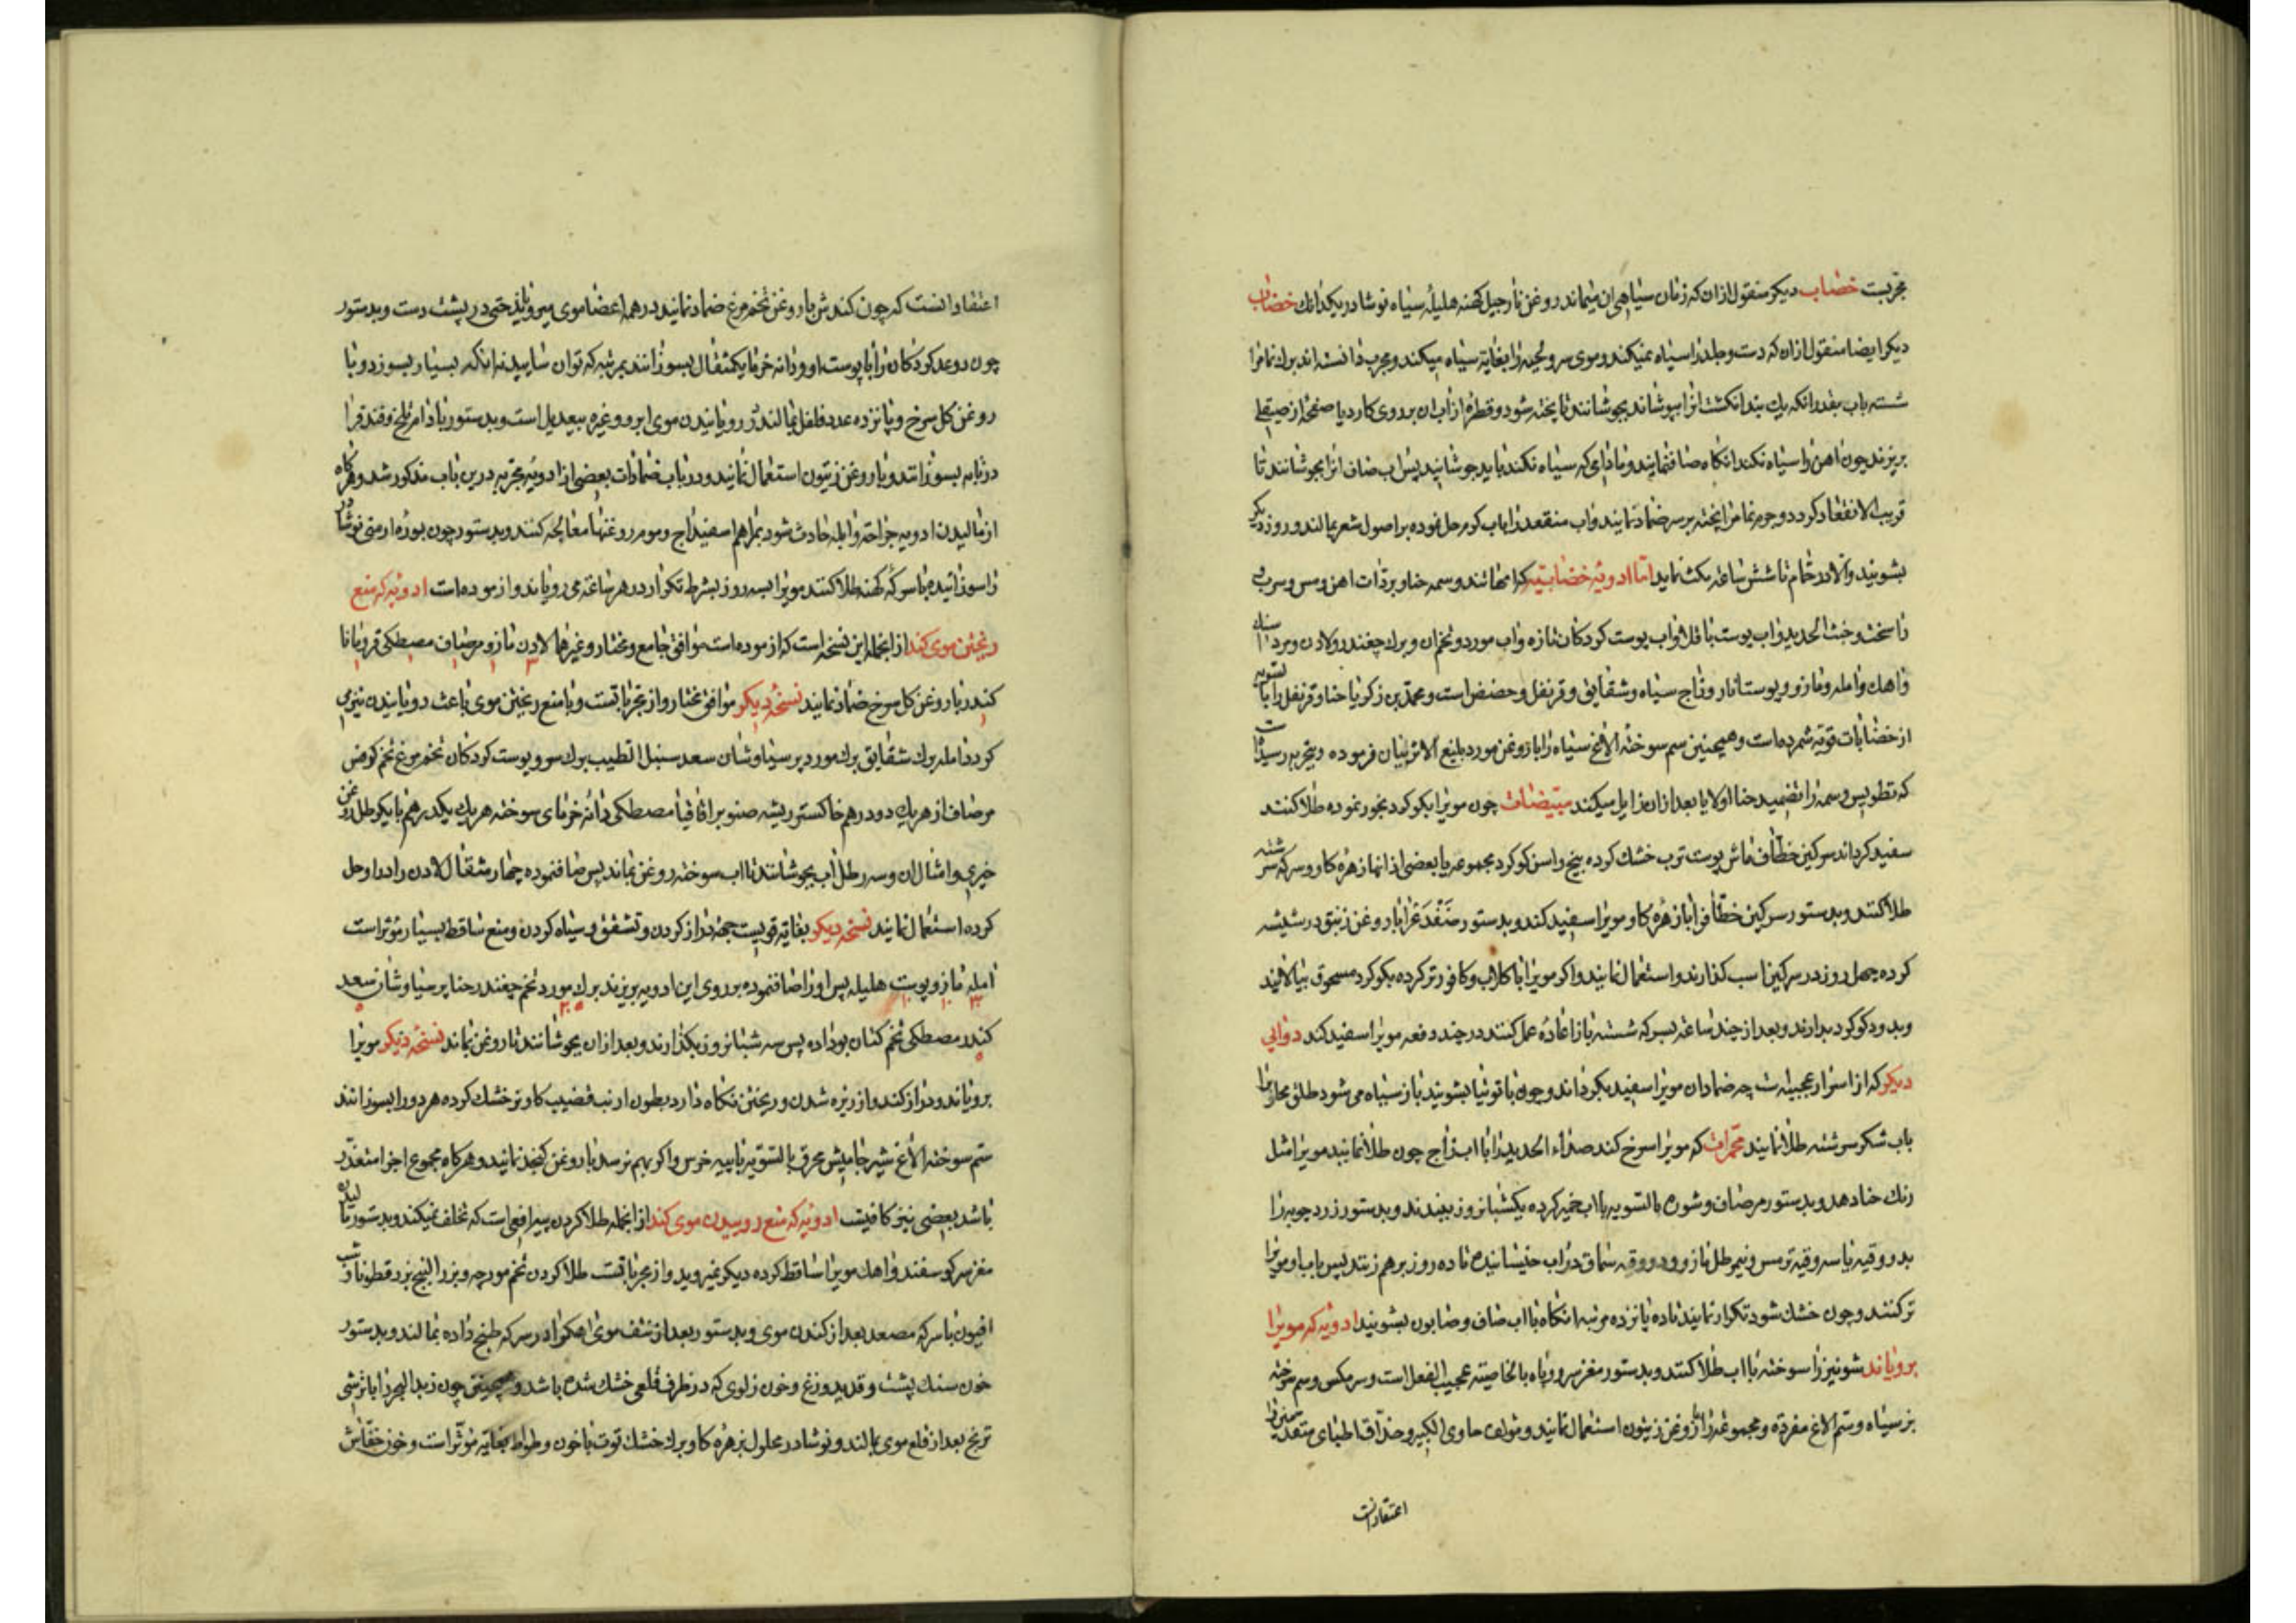 مجربست خضاب دیکر منقول ازان که زمان سیاهی ان میماند روغن نارجیل کهنه هلیلهٔ سیاه نوشادر یکدانک خضاب
دیکر ایضا منقول ازان که دست و جلد را سیاه نمیکند و موی سر و لحیه را بغایة سیاه میکند و مجرب دانسته اند برك
شسته باب بقدر انکه یك بند انکشت انرا بپوشاند بجوشانند تا پخته شود و قطرهٔ از اب ان بر روی کارد یا صفحهٔ از صیقلی
بریزند چون اهن را سیاه نکند انکاه صاف نمایند و مادامی که سیاه نکند باید جوشانید پس اب صاف انرا بجوشانند تا
قریب الانعقاد کردد و جرم پخته بر سر ضماد نمایند واب منعقد را باب کرم حل نموده بر اصول شعر بمالند و روز دیکر
بشویند والا در حمام تا شش ساعة مکث نماید اما ادویهٔ خضابیه وسمه حنا و برادات اهن و مس و سرب و
خبث الحدید واب پوست باقلا واب پوست کردکان تازه واب مورد و تخم ان و برك چغندر و لادن و مرداسنك
واهك وامله و مازو و پوست انار و زاج سیاه و شقایق و قرنفل و حضض است و محمد بن زکریا حنا و قرنفل را بالسویه
از خضابات قویه شمرده است و همچنین سم سوختهٔ الاغ سیاه را با روغن مورد بلیغ الاثر بیان فرموده و بتجربه رسیده است
که وسمه را تضمید حنا اولا یا بعد ازان زایل میکند مبیضات چون مویرا بکوکرد بخور نموده طلا کنند
سفید کرداند سرکین خطاف ماش پوست ترب خشك کرده بیخ راسن کوکرد مجموعه یا بعضی از انها زهرهٔ کاو و سرکه سرشته
طلا کنند و بدستور سرکین خطاف را با زهرهٔ کاو مویرا سفید کند و بدستور با روغن زنبق در شیشه
کرده چهل روز در سرکین اسب کذارند و استعمال نمایند و اکر مویرا با کلاب و کافور تر کرده بکوکرد مسحوق بیالایند
و بدود کوکرد بدارند و بعد از چند ساعة بسرکه شسته باز اعادهٔ عمل کنند در چند دفعه مویرا سفید کند دوایی
دیکر که از اسرار عجیبه است چه ضماد ان مویرا سفید بکرداند و چون با توتیا بشویند باز سیاه می شود طلق محلول را
باب شکر سرشته طلا نمایند محمرات که مویرا سرخ کند صداء الحدید را با اب زاج چون طلا نمایند مویرا مثل
رنك حنا دهد و بدستور مرصاف و شوره بالسویه با اب خمیر کرده یکشبانروز ببندند و بدستور زرد چوبه را
بدو وقیه یا سه وقیه ترمس و نیم رطل مازو و دو وقیه سماق در اب خیسانیده تا ده روز برهم زنند پس با ان اب مویرا
تر کنند و چون خشك شود تکرار نمایند تا ده پانزده مرتبه انکاه با اب صاف و صابون بشویند ادویهٔ که مویرا
برویاند شونیز را سوخته با اب طلا کنند و بدستور مغز سر روباه بالخاصیته عجیب الفعل است و سر مکس و سم سوختهٔ
بز سیاه و سم الاغ مفرده و مجموعه را با روغن زیتون استعمال نمایند و مولف حاوی الکبیر و حذاق اطبای متقدمین را
اعتقاد انست
اعتقاد انست که چون کندش با روغن تخم مرغ ضماد نمایند در همه اعضا موی میرویاند حتی در پشت دست و بدستور
چون دو عدد کردکان را با پوست او و دانه خرما یکمثقال بسوزانند بمرتبهٔ که توان سایید نه انکه بسیار بسوزد و با
روغن کل سرخ و پانزده عدد فلفل بمالند در رویانیدن موی ابرو و غیره بیعدیل است و بدستور بادام تلخ و فندق را
در تابه بسوزانند و با روغن زیتون استعمال نمایند و در باب ضمادات بعضی از ادویه مجربه درین باب مذکور شد و هرکاه
از مالیدن ادویه جراحة وابله حادث شود بمراهم اسفیداج و موم روغنها معالجه کنند و بدستور چون بورهٔ ارمنی نوشادر
را سوزانیده با سرکهٔ کهنه طلا کنند مویرا بسه روز بشرط تکرار در هر ساعة می رویاند و ازموده است ادویهٔ که منع
ریختن موی کند از انجمله این نسخه است که ازموده است موافق جامع و مختار و غیرهما لادن مازو مرصاف مصطکی قردمانا
کندر با روغن کل سرخ ضماد نمایند نسخهٔ دیکر موافق مختار و از مجرباتست و با منع ریختن موی باعث رویانیدن نیز می
کردد امله برك شقایق برك مورد پرسیاوشان سعد سنبل الطیب برك سرو پوست کردکان تخم مرغ تخم کرفس
مرصاف از هریك دو درهم خاکستر ریشه صنوبر اقاقیا مصطکی دانهٔ خرمای سوخته هریك یکدرهم با یکرطل روغن
خیری و امثال ان و سه رطل اب بجوشانند تا اب سوخته روغن بماند پس صاف نموده چهار مثقال لادن را در او حل
کرده استعمال نمایند نسخهٔ دیکر بغایة قویست جهة دراز کردن و تشقق و سیاه کردن و منع تساقط بسیار مؤثر است
امله مازو پوست هلیله پس او را صاف نموده بر روی این ادویه بریزند برك مورد تخم چغندر حنا پرسیاوشان سعد
کندر مصطکی تخم کتان بو داده پس سه شبانروز بکذارند و بعد ازان بجوشانند تا روغن بماند نسخهٔ دیکر مویرا
برویاند و دراز کند و از ریزه شدن و ریختن نکاه دارد بطون ارنب قضیب کاو نر خشك کرده هر دو را بسوزانند
سم سوخته الاغ محرق بالسویه با پیه خرس و اکر بهم نرسد با روغن کنجد نمایند و هرکاه مجموع اجزا متعذر
باشد بعضی نیز کافیست ادویهٔ که منع روییدن موی کند از انجمله طلا کردن پیه افعی است که تخلف نمیکند و بدستور مالیدن
مغز سر کوسفند و اهك مویرا ساقط کرده دیکر نمیروید و از مجرباتست طلا کردن تخم مورچه و بزر البنج بزرقطونا و شب
افیون با سرکه مصعد بعد از کندن موی و بدستور بعد از نتف موی در سرکه طبخ داده بمالند و بدستور
خون سنك پشت و قدید وزغ و خون زلوی که در ظرف قلعی خشك شده باشد و همچنین چون زبد البحر را با ترشی
ترنج بعد از قلع موی بمالند و نوشادر محلول بزهرهٔ کاو و برك خشك توت با خون وطواط بغایة مؤثر است و خون خفاش